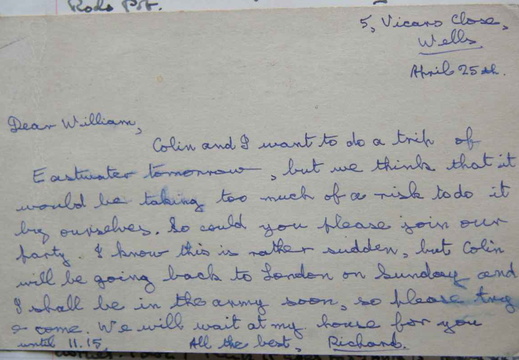 Rods Pot.
5, Vicars Close,
Wells
April 25th.
Dear William,
Colin and I want to do a trip of
Eastwater tomorrow, but we think that it
would be taking too much of a risk to do it
by ourselves. So could you please join our
party. I know this is rather sudden, but Colin
will be going back to London on Sunday and
I shall be in the army soon, so please try
& come. We will wait at my house for you
until 11.15. All the best, Richard.